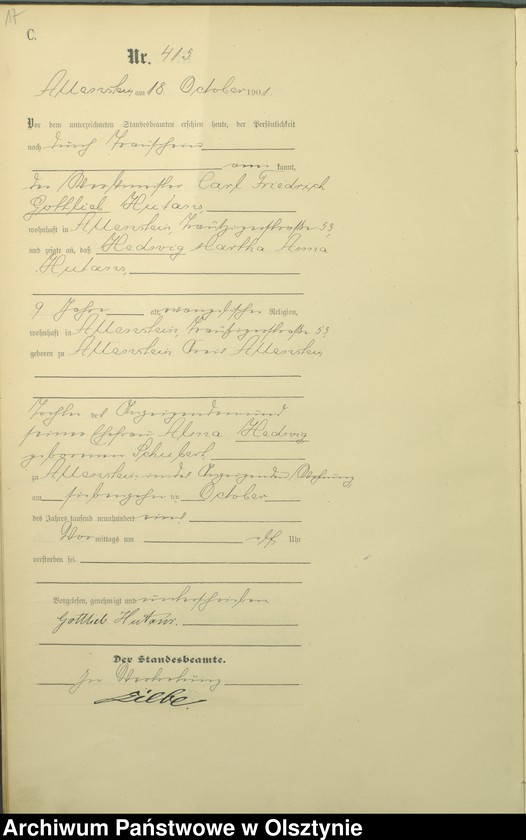 C.
Nr. 415
Allenstein am 18 October 1901.
Vor dem unterzeichneten Standesbeamten erschien heute, der Persönlichkeit
nach durch
kannt,
der Werkmeister Carl Friedrich
Gottlieb Hutans,
wohnhaft in Allenstein, 53,
und zeigte an, daß Hedwig Martha Anna
Hutans,
9 Jahre alt, evangelischer Religion,
wohnhaft in Allenstein, 53
geboren zu Allenstein Kreis Allenstein
Tochter des Anzeigenden und
seiner Ehefrau Alma Hedwig
geborenen Schubert
zu Allenstein in des Anzeigenden Wohnung
am siebenzehnten October
des Jahres tausend neunhundert eins
Vormittags um elf Uhr
verstorben sei.
Vorgelesen, genehmigt und unterschrieben
Gottlieb Hutans.
Der Standesbeamte.
In Vertretung
Archiwum Państwowe w Olsztynie